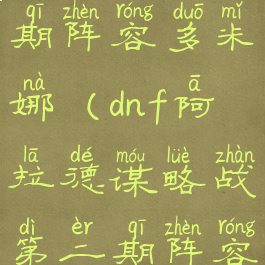 qī zhèn róng duō mǐ
期阵容多米
nà ā
娜(dnf阿
lā dé móu lüè zhàn
拉德谋略战
dì èr qī zhèn róng
第二期阵容